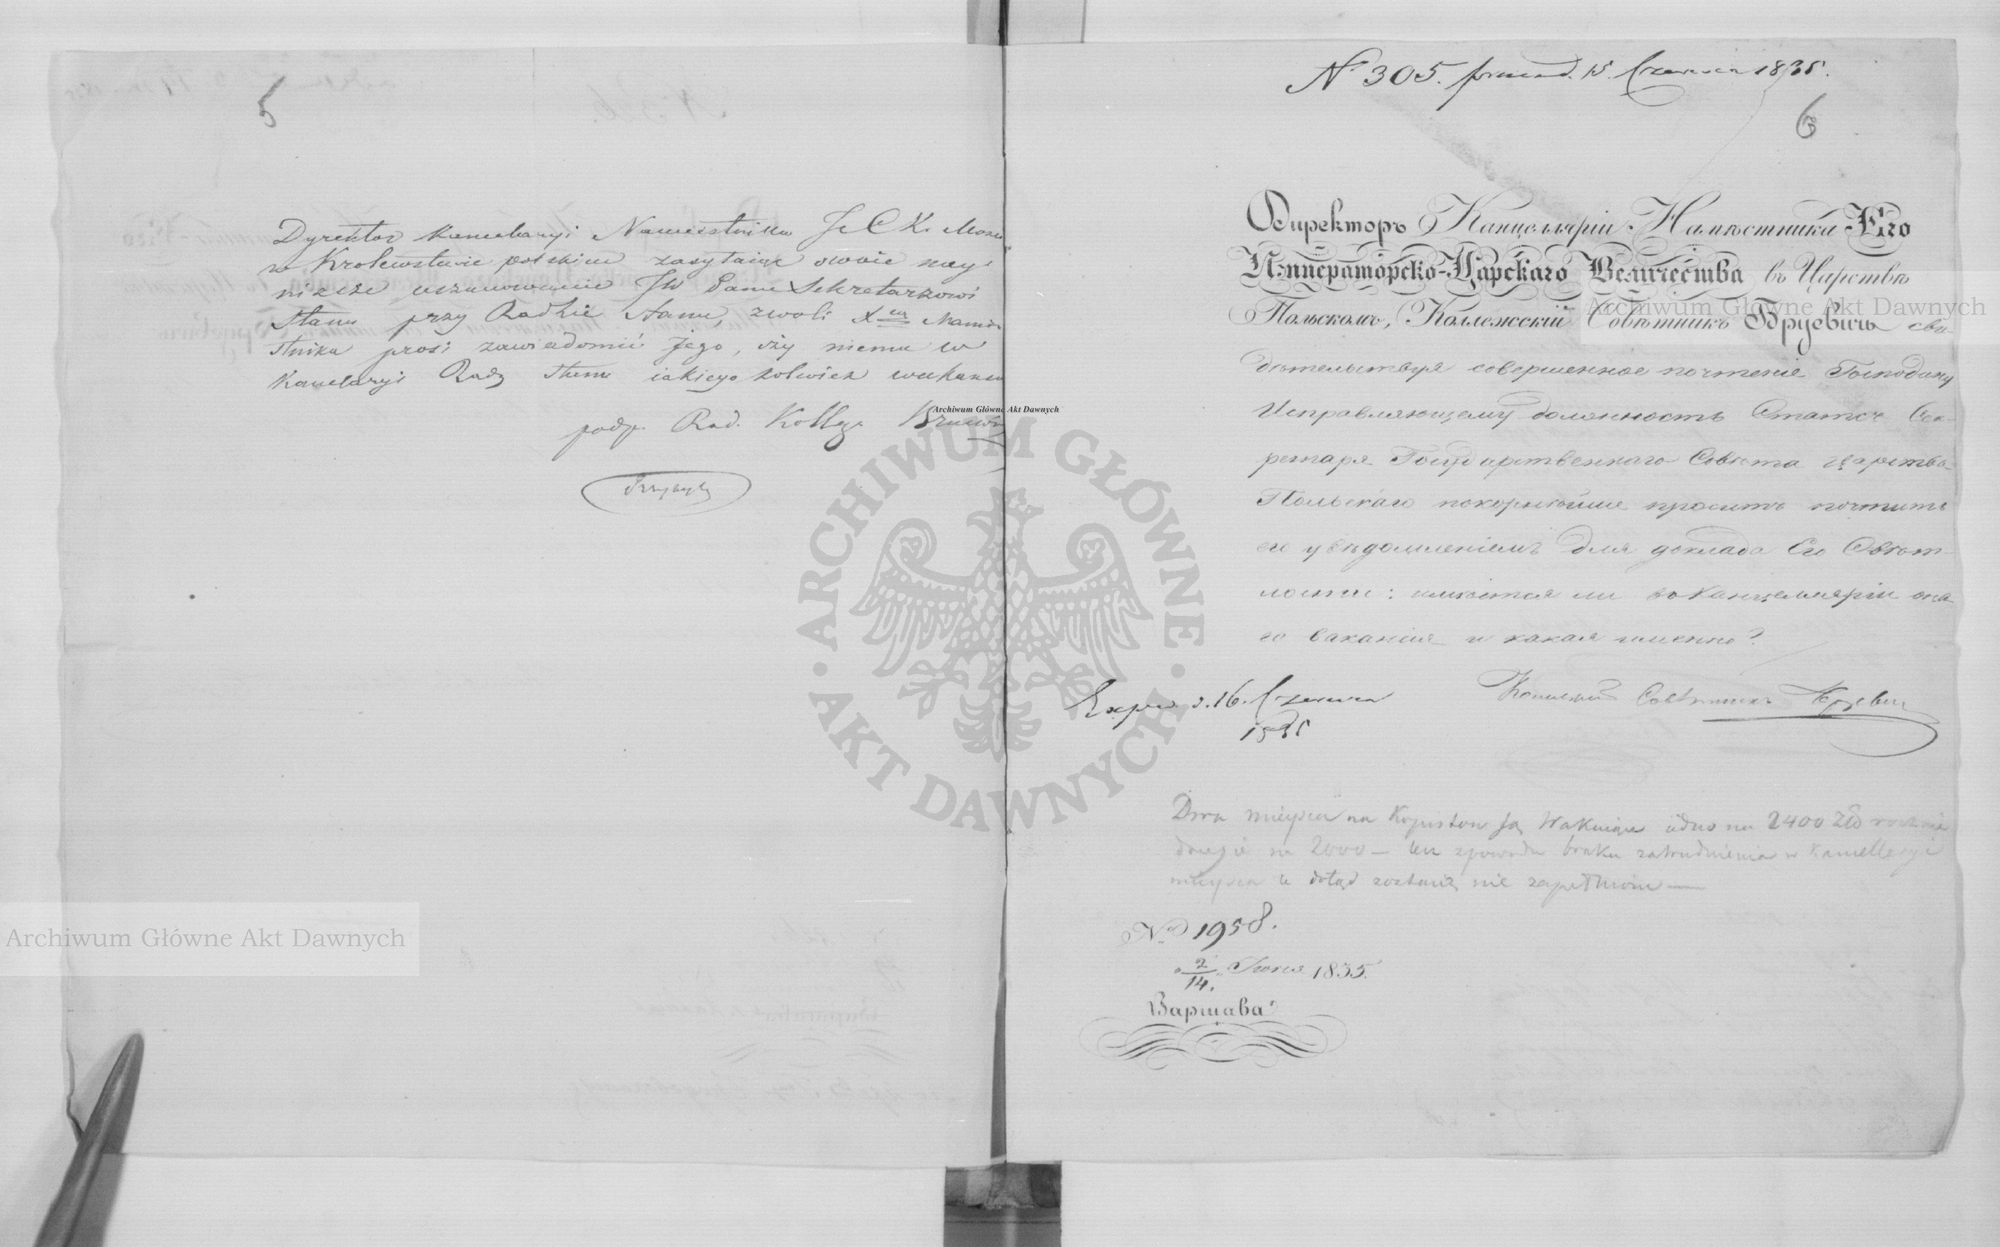 5
Dyrektor Kancelaryi Namiestnika J C K Mości
w Krolewstwie polskim zasyłaiąc swoie nay
niższe uszanowanie JW Panu Sekretarzowi
Stanu przy Radzie Stanu, zwoli Xcia Namie
stnika prosi zawiadomić Jego, czy niema w
Kancelaryi Rady Stanu iakiego kolwiek wakansu
podp. Rad. Kolleg. Bruiewicz
Archiwum Główne Akt Dawnych
N° 305. 15 Czerwca 1835.
6
Директоръ Канцеляріи Намѣстника Его
Императорско-Царскаго Величества въ Царствѣ
Польскомъ, Коллежскій Совѣтникъ Бруевичь сви
дѣтельствуя совершенное почтеніе Господину
Исправляющему должность Статсъ Сек-
ретаря Государственнаго Совѣта Царства
Польскаго покорнѣйше проситъ почтить
его увѣдомленіемъ для доклада Его Свѣт-
лости: имѣется ли въ Канцеляріи она
го ваканія и какая именно?
Коллежскій Совѣтникъ Бруевичь
Exped. d. 16. Czerwca
1835
Dwa mieysca na Kopistow są Wakuiące iedno na 2400 Złp rocznie
drugie na 2000 – lecz zpowodu braku zatrudnienia w Kancellaryi
mieysca te dotąd nie zapełnione —
No 1958.
2/14. Іюня 1835.
Варшава
ARCHIWUM GŁÓWNE
AKT DAWNYCH
Archiwum Główne Akt Dawnych
Archiwum Główne Akt Dawnych